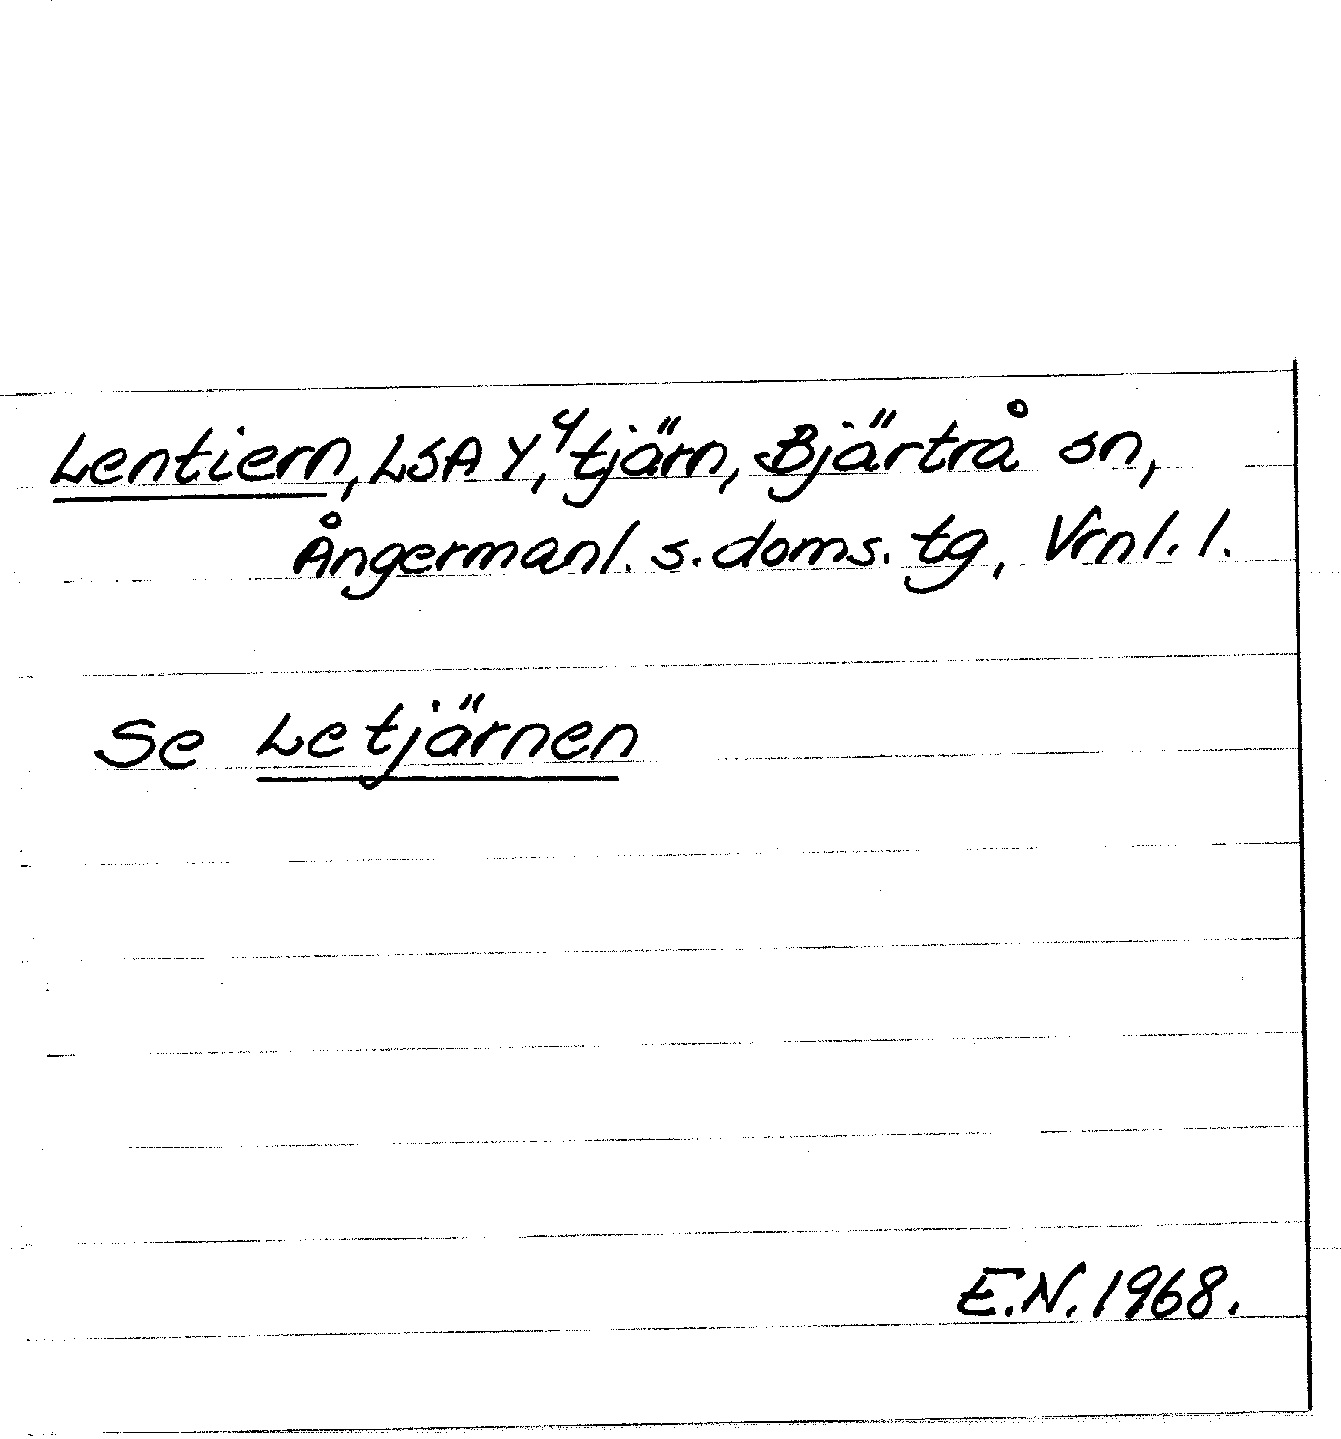 Lentiern, LSA Y, 4 tjärn, Bjärtrå sn,
Ångermanl. s. doms. tg, Vrnl. l.
Se Letjärnen
E.N. 1968.